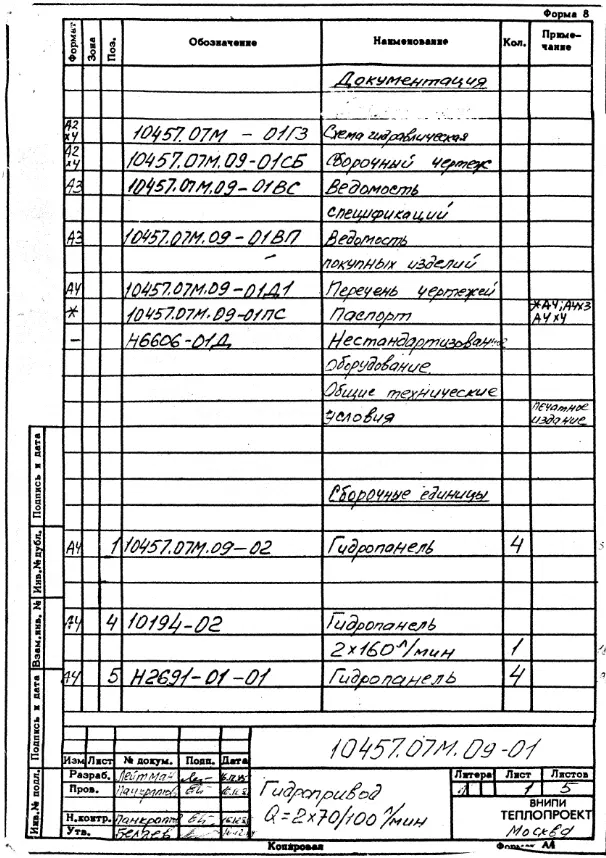 Форма 8
Формат Зона Поз. Обозначение Наименование Кол. Приме-
чание
Документация
А2
х4 10457.07М - 01ГЗ Схема гидравлическая
А2
х4 10457.07М.09-01СБ Сборочный чертеж
А3 10457.07М.09-01ВС Ведомость
спецификаций
А3 10457.07М.09-01ВП Ведомость
покупных изделий
А4 10457.07М.09-01Д1 Перечень чертежей
* 10457.07М.09-01ПС Паспорт *А4; А4х3
А4х4
- Н6606-01Д Нестандартизованное
оборудование.
Общие технические
условия печатное
издание
Сборочные единицы
А4 1 10457.07М.09-02 Гидропанель 4
А4 4 10194-02 Гидропанель
2×160 л/мин 1
А4 5 Н2691-01-01 Гидропанель 4
Подпись и дата
Инв.№ дубл.
Взам.инв. №
Подпись и дата
Инв.№ подл.
10457.07М.09-01
Изм Лист № докум. Подп. Дата
Разраб. Лейтман
Пров. Панкратов
Н.контр. Панкратов
Утв. Беляев
Гидропривод
Q=2×70/100 л/мин
Литера Лист Листов
1 5
ВНИПИ
ТЕПЛОПРОЕКТ
Москва
Копировал Формат А4